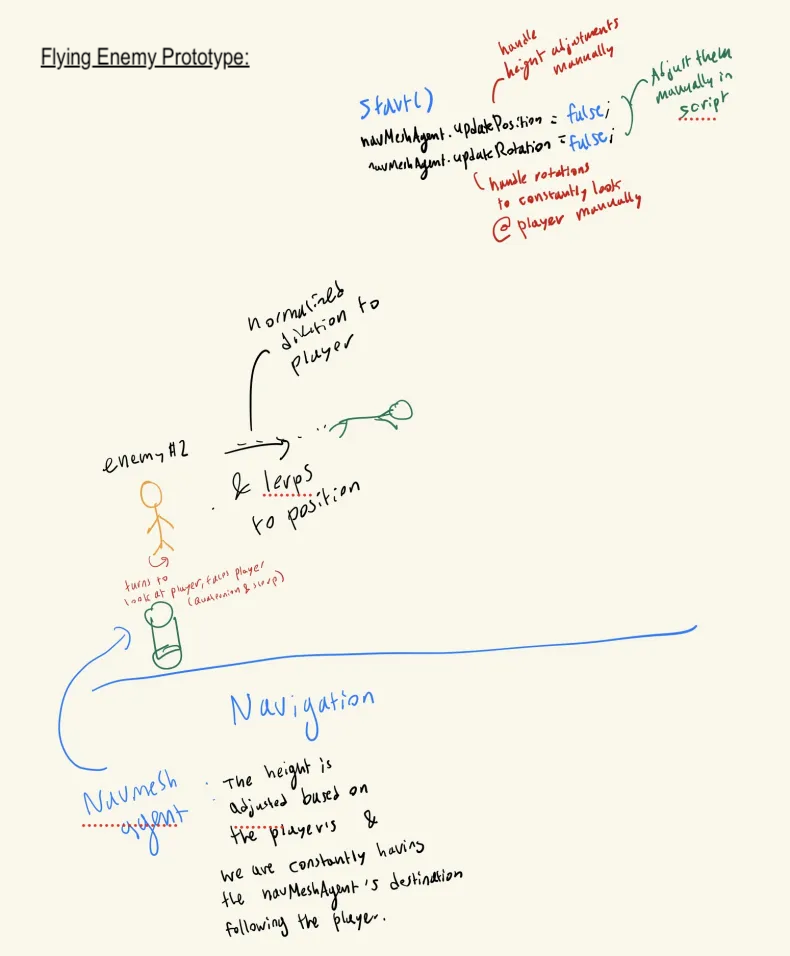 Flying Enemy Prototype:
handle
height adjustments
manually
Start()
navMeshAgent.updatePosition = false;
navMeshAgent.updateRotation = false;
Adjust them
manually in
script
handle rotations
to constantly look
@ player manually
normalized
direction to
player
enemy #2
& lerps
to position
turns to
look at player, faces player
(quaternion & slerp)
Navigation
Navmesh
agent
: The height is
adjusted based on
the player's &
we are constantly having
the navMeshAgent's destination
following the player.